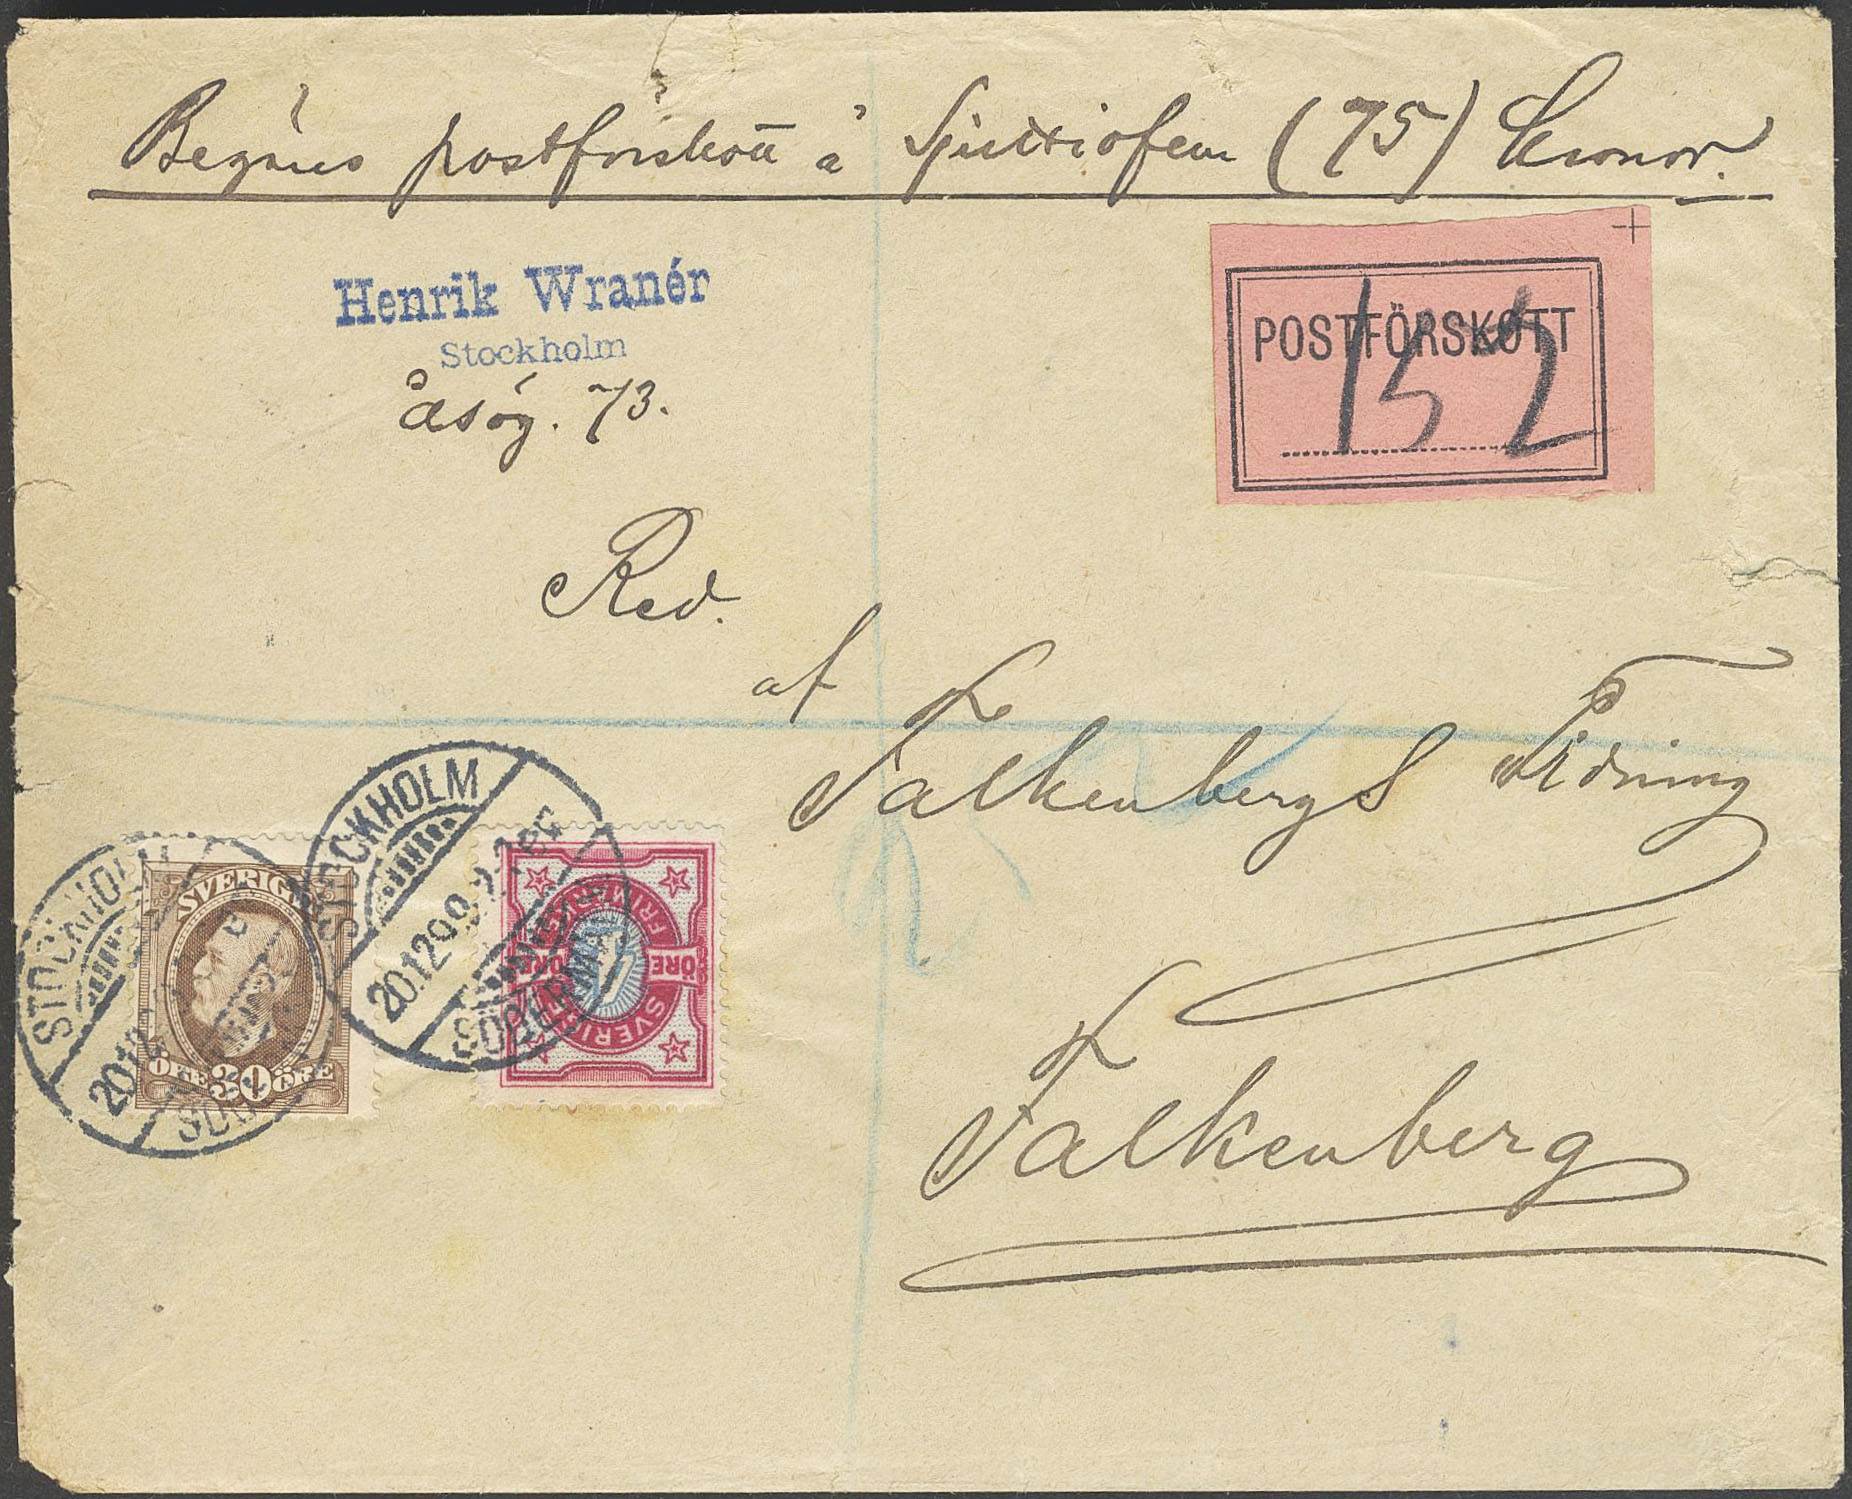 Begäres postförskott à Sjuttiofem (75) Kronor.
Henrik Wranér
Stockholm
Åsög. 73.
POSTFÖRSKOTT
152
Red.
af
Falkenbergs Tidning
Falkenberg
STOCKHOLM
20.12.99
SÖDERMALM
STOCKHOLM
SVERIGE
ÖRE 30 ÖRE
FRIMÄRKE
ÖRE 1 ÖRE
SVERIGE